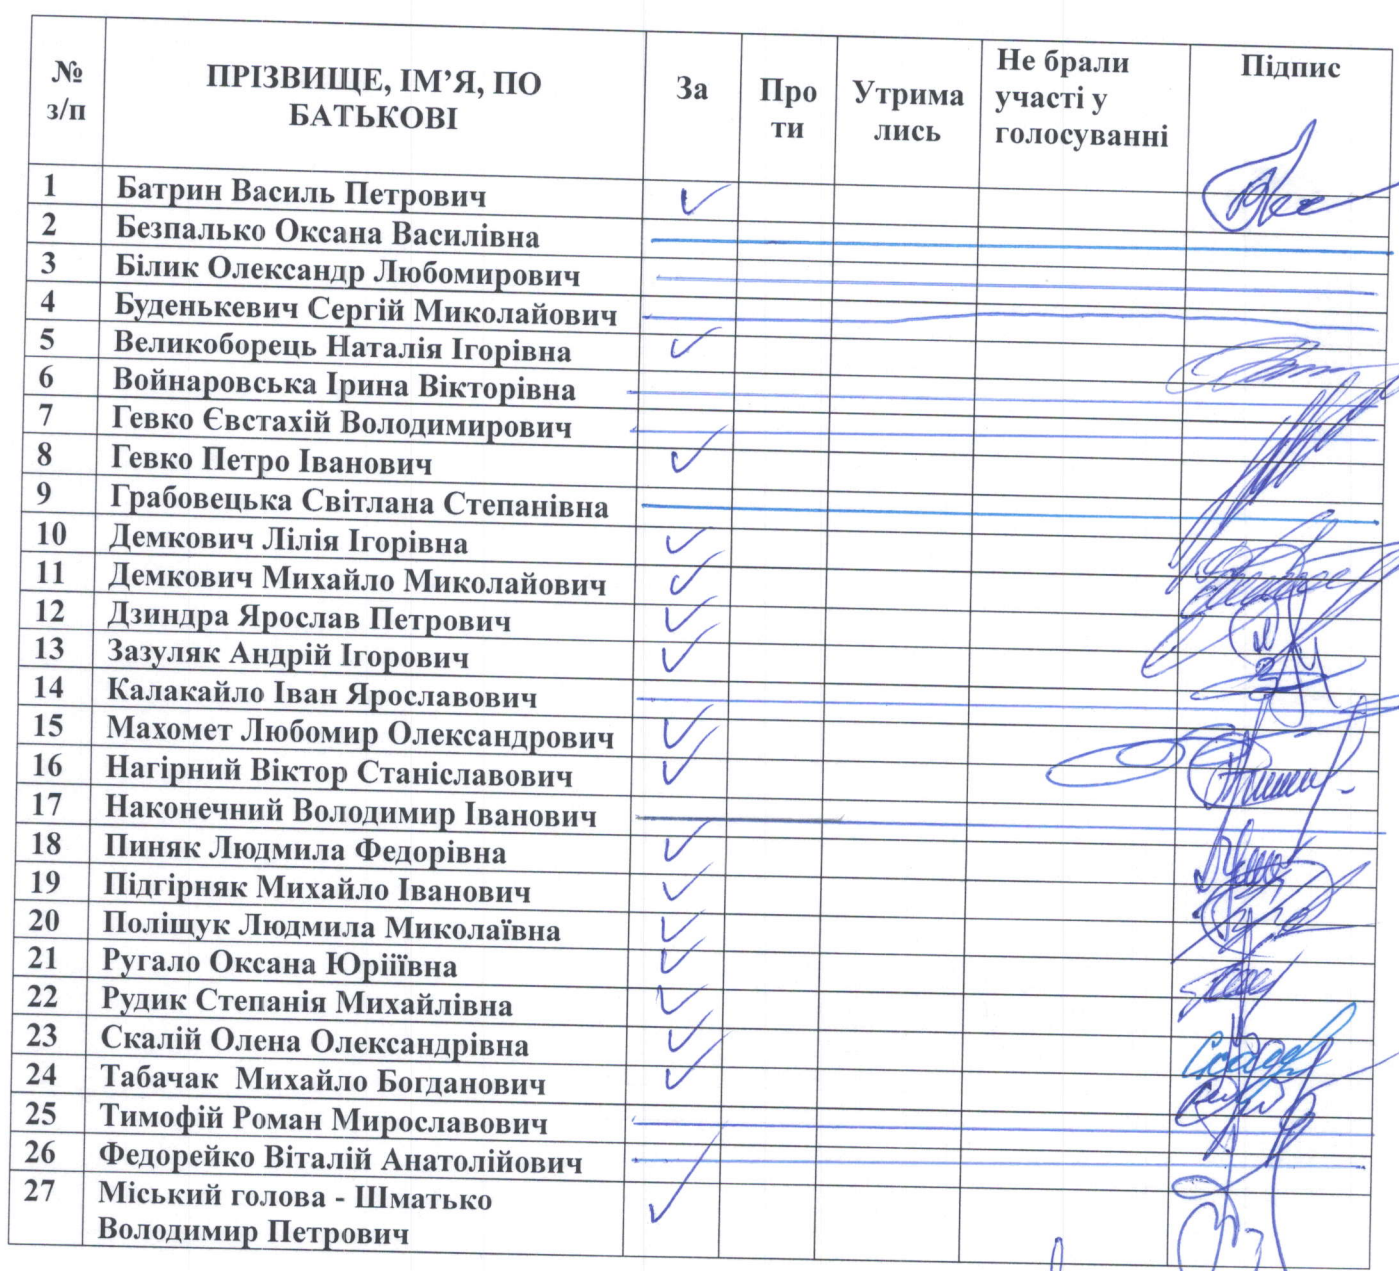 № з/п ПРІЗВИЩЕ, ІМ’Я, ПО БАТЬКОВІ За Про ти Утрима лись Не брали участі у голосуванні Підпис
1 Батрин Василь Петрович ✓
2 Безпалько Оксана Василівна
3 Білик Олександр Любомирович
4 Буденькевич Сергій Миколайович
5 Великоборець Наталія Ігорівна ✓
6 Войнаровська Ірина Вікторівна
7 Гевко Євстахій Володимирович
8 Гевко Петро Іванович ✓
9 Грабовецька Світлана Степанівна
10 Демкович Лілія Ігорівна ✓
11 Демкович Михайло Миколайович ✓
12 Дзиндра Ярослав Петрович ✓
13 Зазуляк Андрій Ігорович ✓
14 Калакайло Іван Ярославович
15 Махомет Любомир Олександрович ✓
16 Нагірний Віктор Станіславович ✓
17 Наконечний Володимир Іванович
18 Пиняк Людмила Федорівна ✓
19 Підгірняк Михайло Іванович ✓
20 Поліщук Людмила Миколаївна ✓
21 Ругало Оксана Юріїівна ✓
22 Рудик Степанія Михайлівна ✓
23 Скалій Олена Олександрівна ✓
24 Табачак Михайло Богданович ✓
25 Тимофій Роман Мирославович
26 Федорейко Віталій Анатолійович
27 Міський голова - Шматько
Володимир Петрович ✓